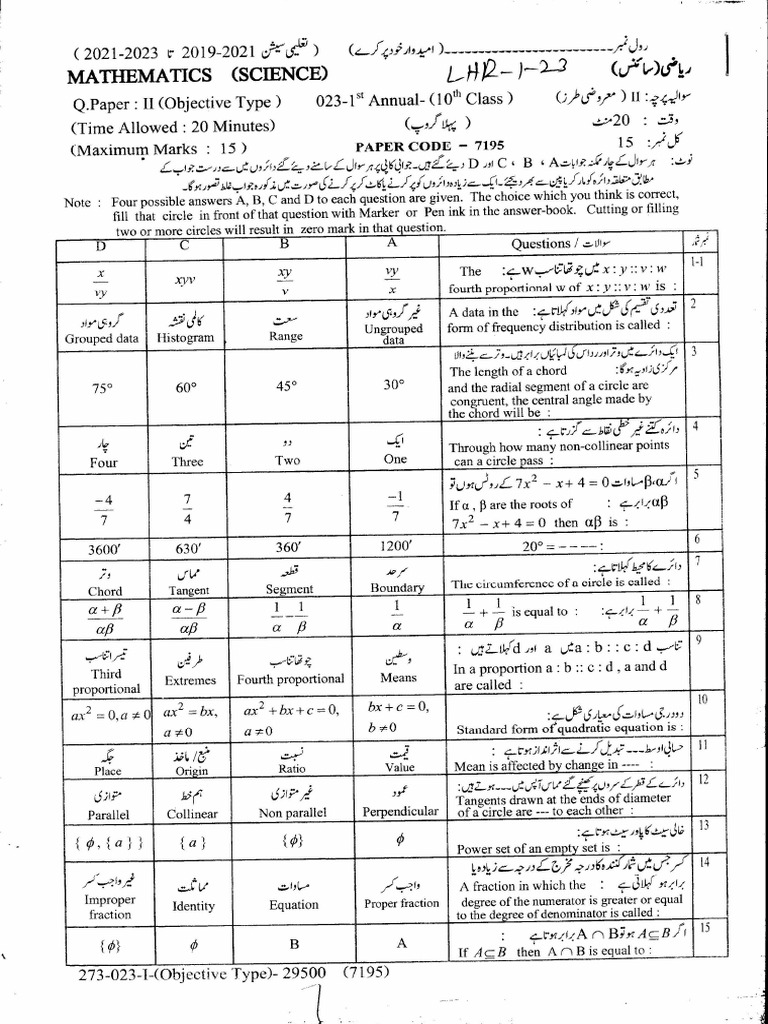 رول نمبر ------------------------ (امیدوار خود پر کرے) (تعلیمی سیشن 2019-2021 تا 2021-2023)
ریاضی (سائنس) LHR-1-23 MATHEMATICS (SCIENCE)
Q.Paper : II (Objective Type) 023-1st Annual-(10th Class) سوالیہ پرچہ : II (معروضی طرز)
(Time Allowed : 20 Minutes) (پہلا گروپ) وقت : 20 منٹ
(Maximum Marks : 15) PAPER CODE – 7195 کل نمبر : 15
نوٹ: ہر سوال کے چار ممکنہ جوابات A ، B ، C اور D دیئے گئے ہیں۔ جوابی کاپی پر ہر سوال کے سامنے دیئے گئے دائروں میں سے درست جواب کے
مطابق متعلقہ دائرہ کو مارکر یا پین سے بھر دیجئے۔ ایک سے زیادہ دائروں کو پر کرنے یا کاٹ کر پر کرنے کی صورت میں مذکورہ جواب غلط تصور ہوگا۔
Note : Four possible answers A, B, C and D to each question are given. The choice which you think is correct,
fill that circle in front of that question with Marker or Pen ink in the answer-book. Cutting or filling
two or more circles will result in zero mark in that question.
D C B A Questions / سوالات نمبر شمار
x/vy xyv xy/v vy/x The x : y :: v : w میں چوتھا تناسب w ہے: 1-1
fourth proportional w of x : y :: v : w is :
گروہی مواد کالمی نقشہ سعت غیر گروہی مواد A data in the تعددی تقسیم کی شکل میں مواد کہلاتا ہے: 2
Grouped data Histogram Range Ungrouped data form of frequency distribution is called :
ایک دائرے میں وتر اور رداس کی لمبائیاں برابر ہیں۔ وتر سے بننے والا 3
The length of a chord مرکزی زاویہ ہوگا:
75° 60° 45° 30° and the radial segment of a circle are
congruent, the central angle made by
the chord will be :
چار تین دو ایک دائرہ کتنے غیر خطی نقاط سے گزرتا ہے: 4
Four Three Two One Through how many non-collinear points
can a circle pass :
اگر α،β مساوات 7x² − x + 4 = 0 کے روٹس ہوں تو 5
−4/7 7/4 4/7 −1/7 If α , β are the roots of : αβ برابر ہے
7x² − x + 4 = 0 then αβ is :
3600′ 630′ 360′ 1200′ 20° = − − − − : 6
وتر مماس قطعہ سرحد دائرے کا محیط کہلاتا ہے: 7
Chord Tangent Segment Boundary The circumference of a circle is called :
α + β/αβ α − β/αβ 1/α − 1/β 1/α 1/α + 1/β is equal to : 1/α + 1/β برابر ہے: 8
تیسرا تناسب طرفین چوتھا تناسب وسطین تناسب a : b :: c : d میں a اور d کہلاتے ہیں: 9
Third proportional Extremes Fourth proportional Means In a proportion a : b :: c : d , a and d
are called :
ax² = 0, a ≠ 0 ax² = bx, a ≠ 0 ax² + bx + c = 0, a ≠ 0 bx + c = 0, b ≠ 0 دو درجی مساوات کی معیاری شکل ہے: 10
Standard form of quadratic equation is :
جگہ منبع / ماخذ نسبت قیمت حسابی اوسط --- تبدیل کرنے سے اثر انداز ہوتا ہے: 11
Place Origin Ratio Value Mean is affected by change in ---- :
متوازی ہم خط غیر متوازی عمود دائرے کے قطر کے سروں پر کھینچے گئے مماس آپس میں --- ہوتے ہیں: 12
Parallel Collinear Non parallel Perpendicular Tangents drawn at the ends of diameter
of a circle are --- to each other :
{ ϕ , { a } } { a } {ϕ} ϕ خالی سیٹ کا پاور سیٹ ہوتا ہے: 13
Power set of an empty set is :
غیر واجب کسر مماثلت مساوات واجب کسر کسر جس میں شمار کنندہ کا درجہ مخرج کے درجہ سے زیادہ یا 14
A fraction in which the : برابر ہو کہلاتی ہے
Improper fraction Identity Equation Proper fraction degree of the numerator is greater or equal
to the degree of denominator is called :
{ϕ} ϕ B A اگر A⊆B ہو تو A∩B برابر ہوتا ہے: 15
If A⊆B then A∩B is equal to :
273-023-I-(Objective Type)- 29500 (7195)